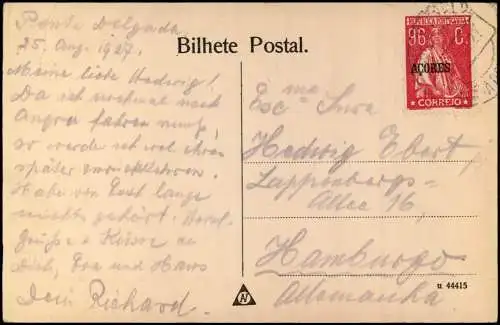 Ponta Delgada,
25. Aug. 1927.
Bilhete Postal.
REPUBLICA PORTUGUESA
96 C.
AÇORES
CORREIO
Meine liebe Hedwig!
Da ich nochmal nach
Angra fahren muß,
so werde ich wol etwas
später zurückkehren.
Habe von Euch lange
nichts gehört. Herzl.
Grüße & Küsse an
Dich, und Hans
Dein Richard.
Exc ma Snra
Hedwig Ebert
Lappenbergs-
Allee 16,
Hamburgo
Allemanha
u 44415